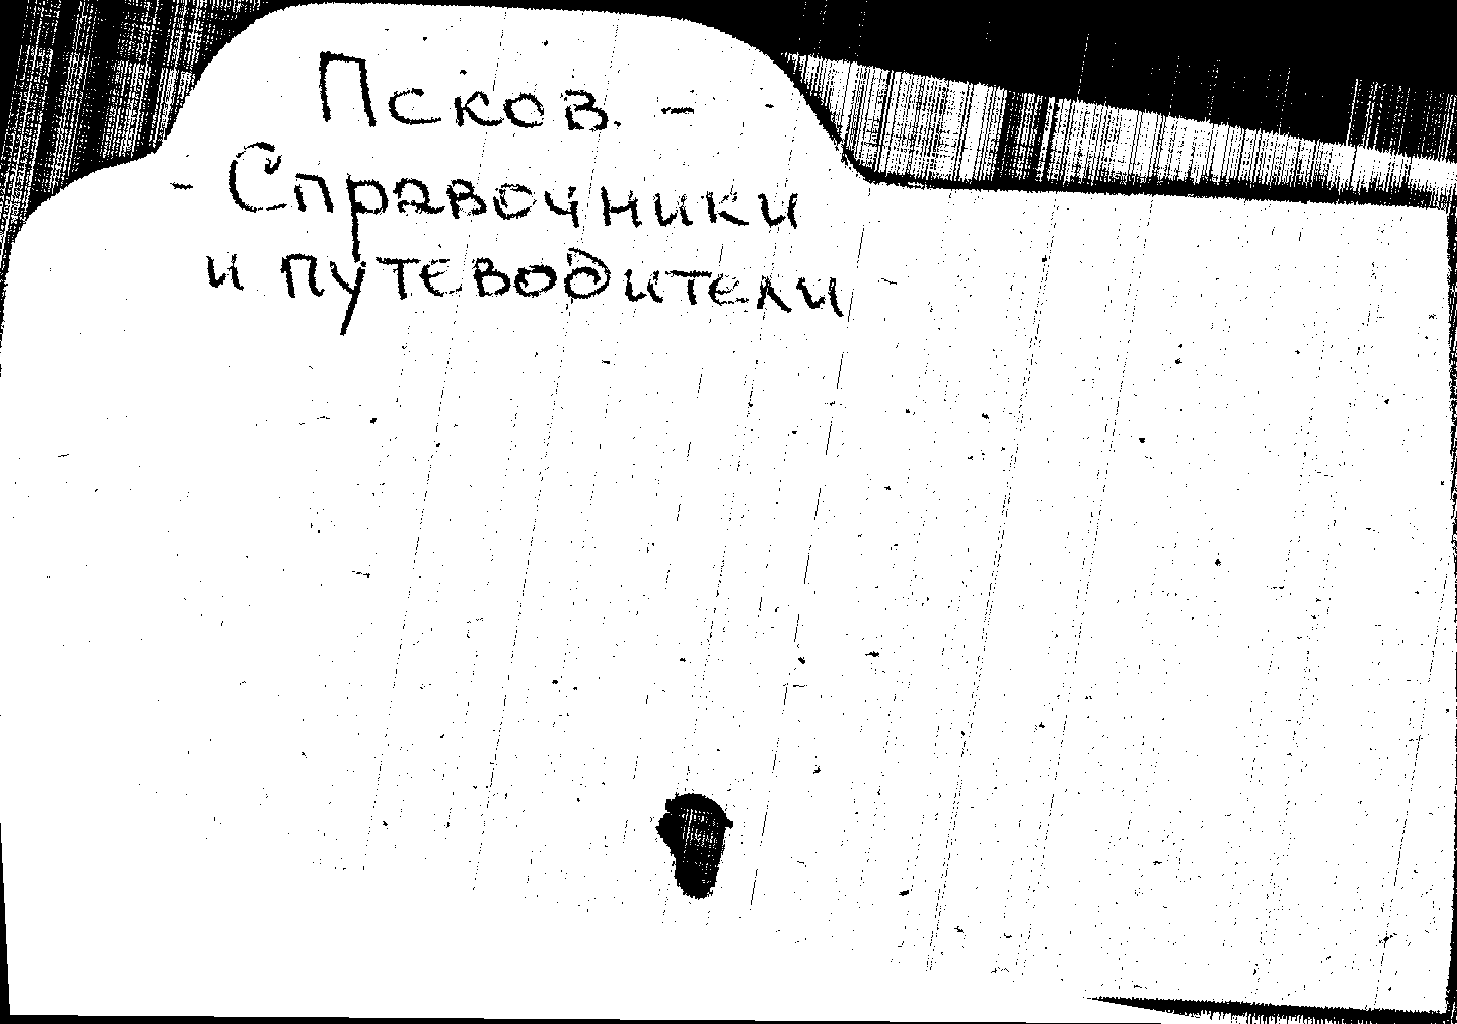 Псков. -
- Справочники
и путеводители